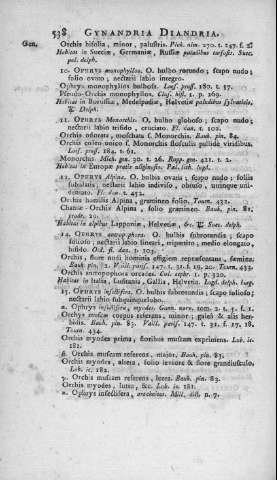 538 GYNANDRIA DIANDRIA.
Gen. Orchis bifolia, minor, palustris.
Habitat in Sueciæ, Germaniæ, Russiæ paludibus
pal. delph.
10. OPHRYS monophyllos. O. bulbo rotundo; scapo nudo;
folio ovato; nectarii labio integro.
Ophrys monophyllos bulbosa. Loes. pruss. 180. t. 57.
Pseudo-Orchis monophyllos.
Habitat in Borussia, Medelpadia, Helvetiæ paludibus sylvaticis,
Delph.
11. OPHRYS Monorchis. O. bulbo globoso; scapo nudo;
nectarii labio trifido, cruciato. Fl. dan. t. 102.
Orchis odorata, moschata f. Monorchis. Bauh. pin. 84.
Orchis coleo unico f. Monorchis flosculis pallide viridibus.
Loes. pruss. 184. t. 61.
Monorchis. Mich. gen. 30. t. 26. Rupp. gen. 421. t. 2.
Habitat in Europæ pratis
12. OPHRYS Alpina. O. bulbis ovatis; scapo nudo; foliis
subulatis, nectarii labio indiviso, obtuso, utrinque uni-
dentato. Fl. dan. t. 452.
Orchis humilis Alpina, gramineo folio. Tourn. 432.
Chamæ-Orchis Alpina, folio gramineo. Bauh. pin. 81.
prodr. 29.
Habitat in alpibus Lapponiæ, Helvetiæ, &c. Suec. delph.
14. OPHRYS anthropophora. O. bulbis subrotundis; scapo
folioso; nectarii labio lineari, tripartito; medio elongato,
bifido.
Orchis, flore nudi hominis effigiem repræsentans, fæmina.
Bauh. pin. 82. Vaill. paris. 147. t. 31. f. 19. 20. Tourn. 433.
Orchis anthropophora oreades. Col. ecphr. 1. p. 320.
Habitat in Italia, Lusitania, Gallia, Helvetia.
15. OPHRYS insectifera. O. bulbis subrotundis; scapo folioso;
nectarii labio subquinquelobo.
α. Ophrys insectifera, myodes.
Orchys muscæ corpus referens, minor; galea & alis her-
bidis. Bauh. pin. 83. Vaill. paris. 147. t. 31. f. 17. 18.
Tourn. 434.
Orchis myodes prima, floribus muscam exprimens. Lob. ic.
181.
β. Orchis muscam referens, major. Bauh. pin. 83.
Orchis myodes, altera, folio latiore & flore grandiusculo.
Lob. ic. 182.
γ. Orchis muscam referens, lutea. Bauh. pin. 83.
Orchis myodes, lutea, &c. Lob. ic. 181.
Ophrys insectifera, arachnites. Mill. dict. n. 7.